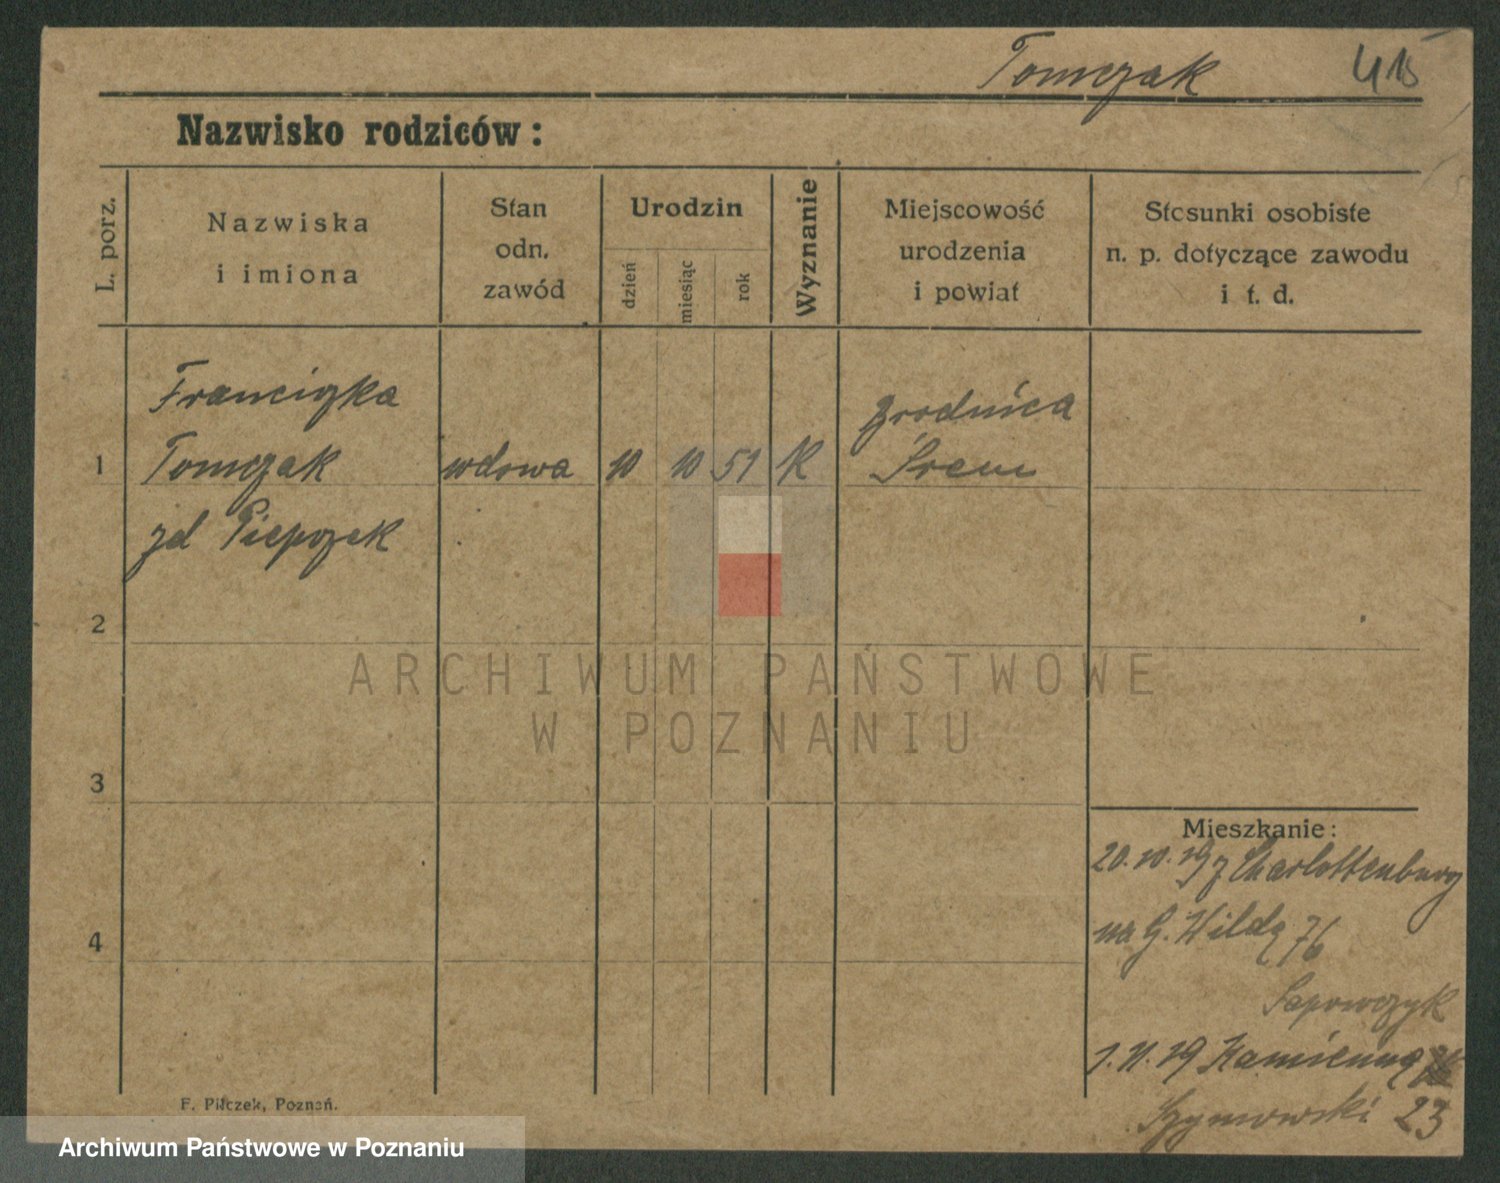 Tomczak 415
Nazwisko rodziców:
L. porz.
Nazwiska
i imiona
Stan
odn.
zawód
Urodzin
dzień
miesiąc
rok
Wyznanie
Miejscowość
urodzenia
i powiat
Stosunki osobiste
n. p. dotyczące zawodu
i t. d.
Franciszka
1 Tomczak wdowa 10 10 51 K Zrodnica
Śrem
zd
2
3
4
Mieszkanie:
20.10.19 z Charlottenburg
na G. Wildę 76
1.11.19
Szymowski 23
F. Pilczek, Poznań.
ARCHIWUM PAŃSTWOWE
W POZNANIU
Archiwum Państwowe w Poznaniu